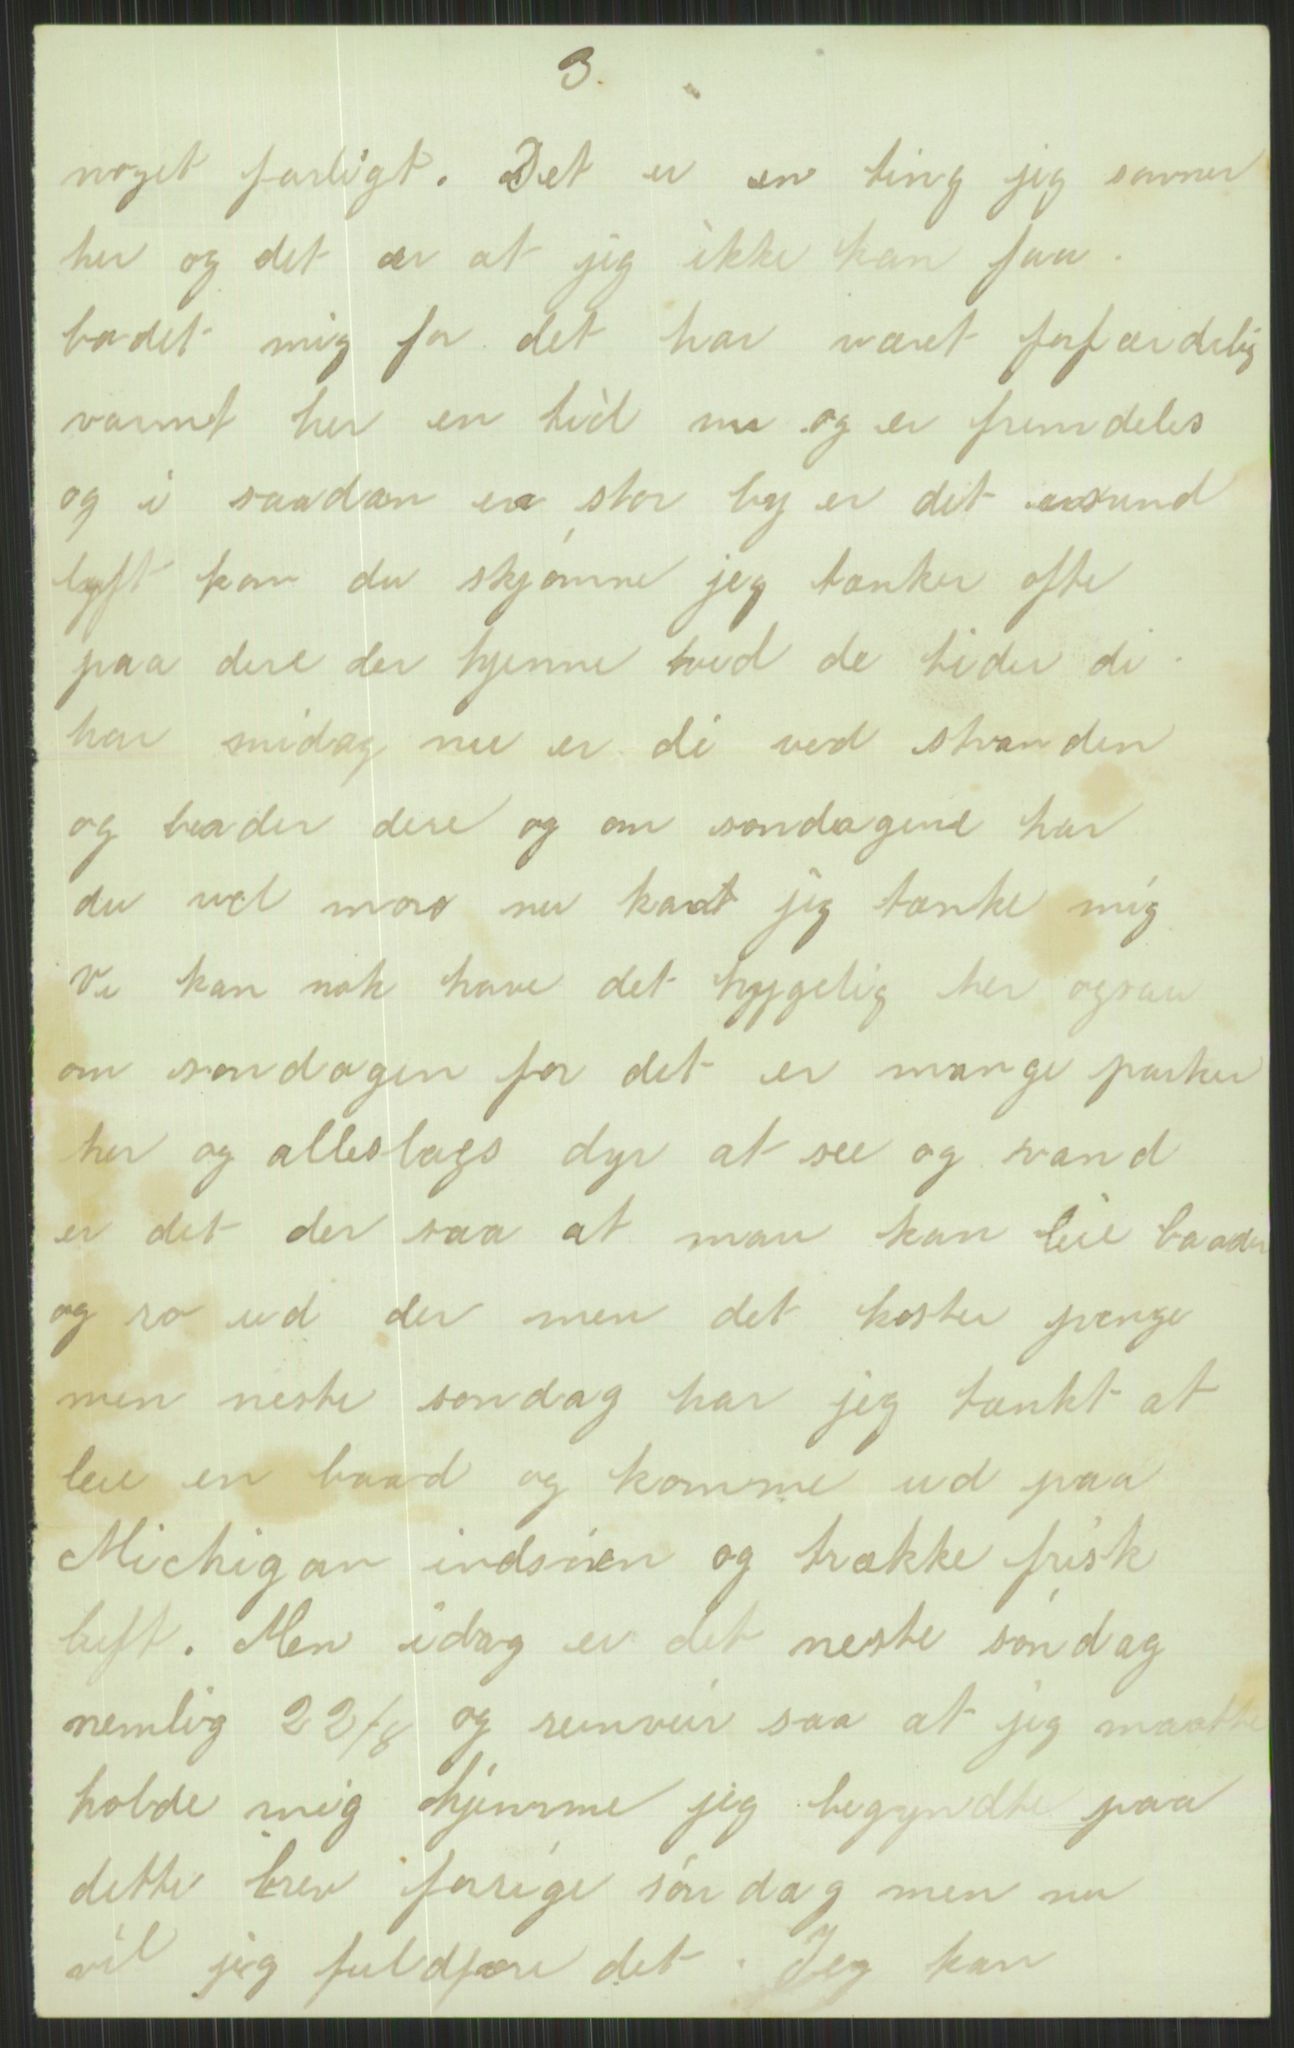 3.
noget farligt. Det er en ting jeg savner
her og det er at jeg ikke kan faa
badet mig for det har været forfærdelig
varmt her en tid nu og er fremdeles
og i saadan en stor by er det usund
lyft kan du skjønne jeg tænker ofte
paa dere der hjemme ved de tider di
har midag nu er di ved stranden
og bader dere og om søndagene har
du vel moro nu kant jeg tænke mig
Vi kan nok have det hygelig her ogsaa
om søndagen for det er mange parker
her og alleslags dyr at see og vand
er det der saa at man kan leie baader
og ro ud der men det koster penge
men neste søndag har jeg tænkt at
leie en baad og komme ud paa
Michigan indsøen og trække frisk
luft. Men idag er det neste søndag
nemlig 22/8 og reinveir saa at jeg maatte
holde mig hjemme jeg begyndte paa
dette brev forige søndag men nu
vil jeg fuldføre det. Jeg kan